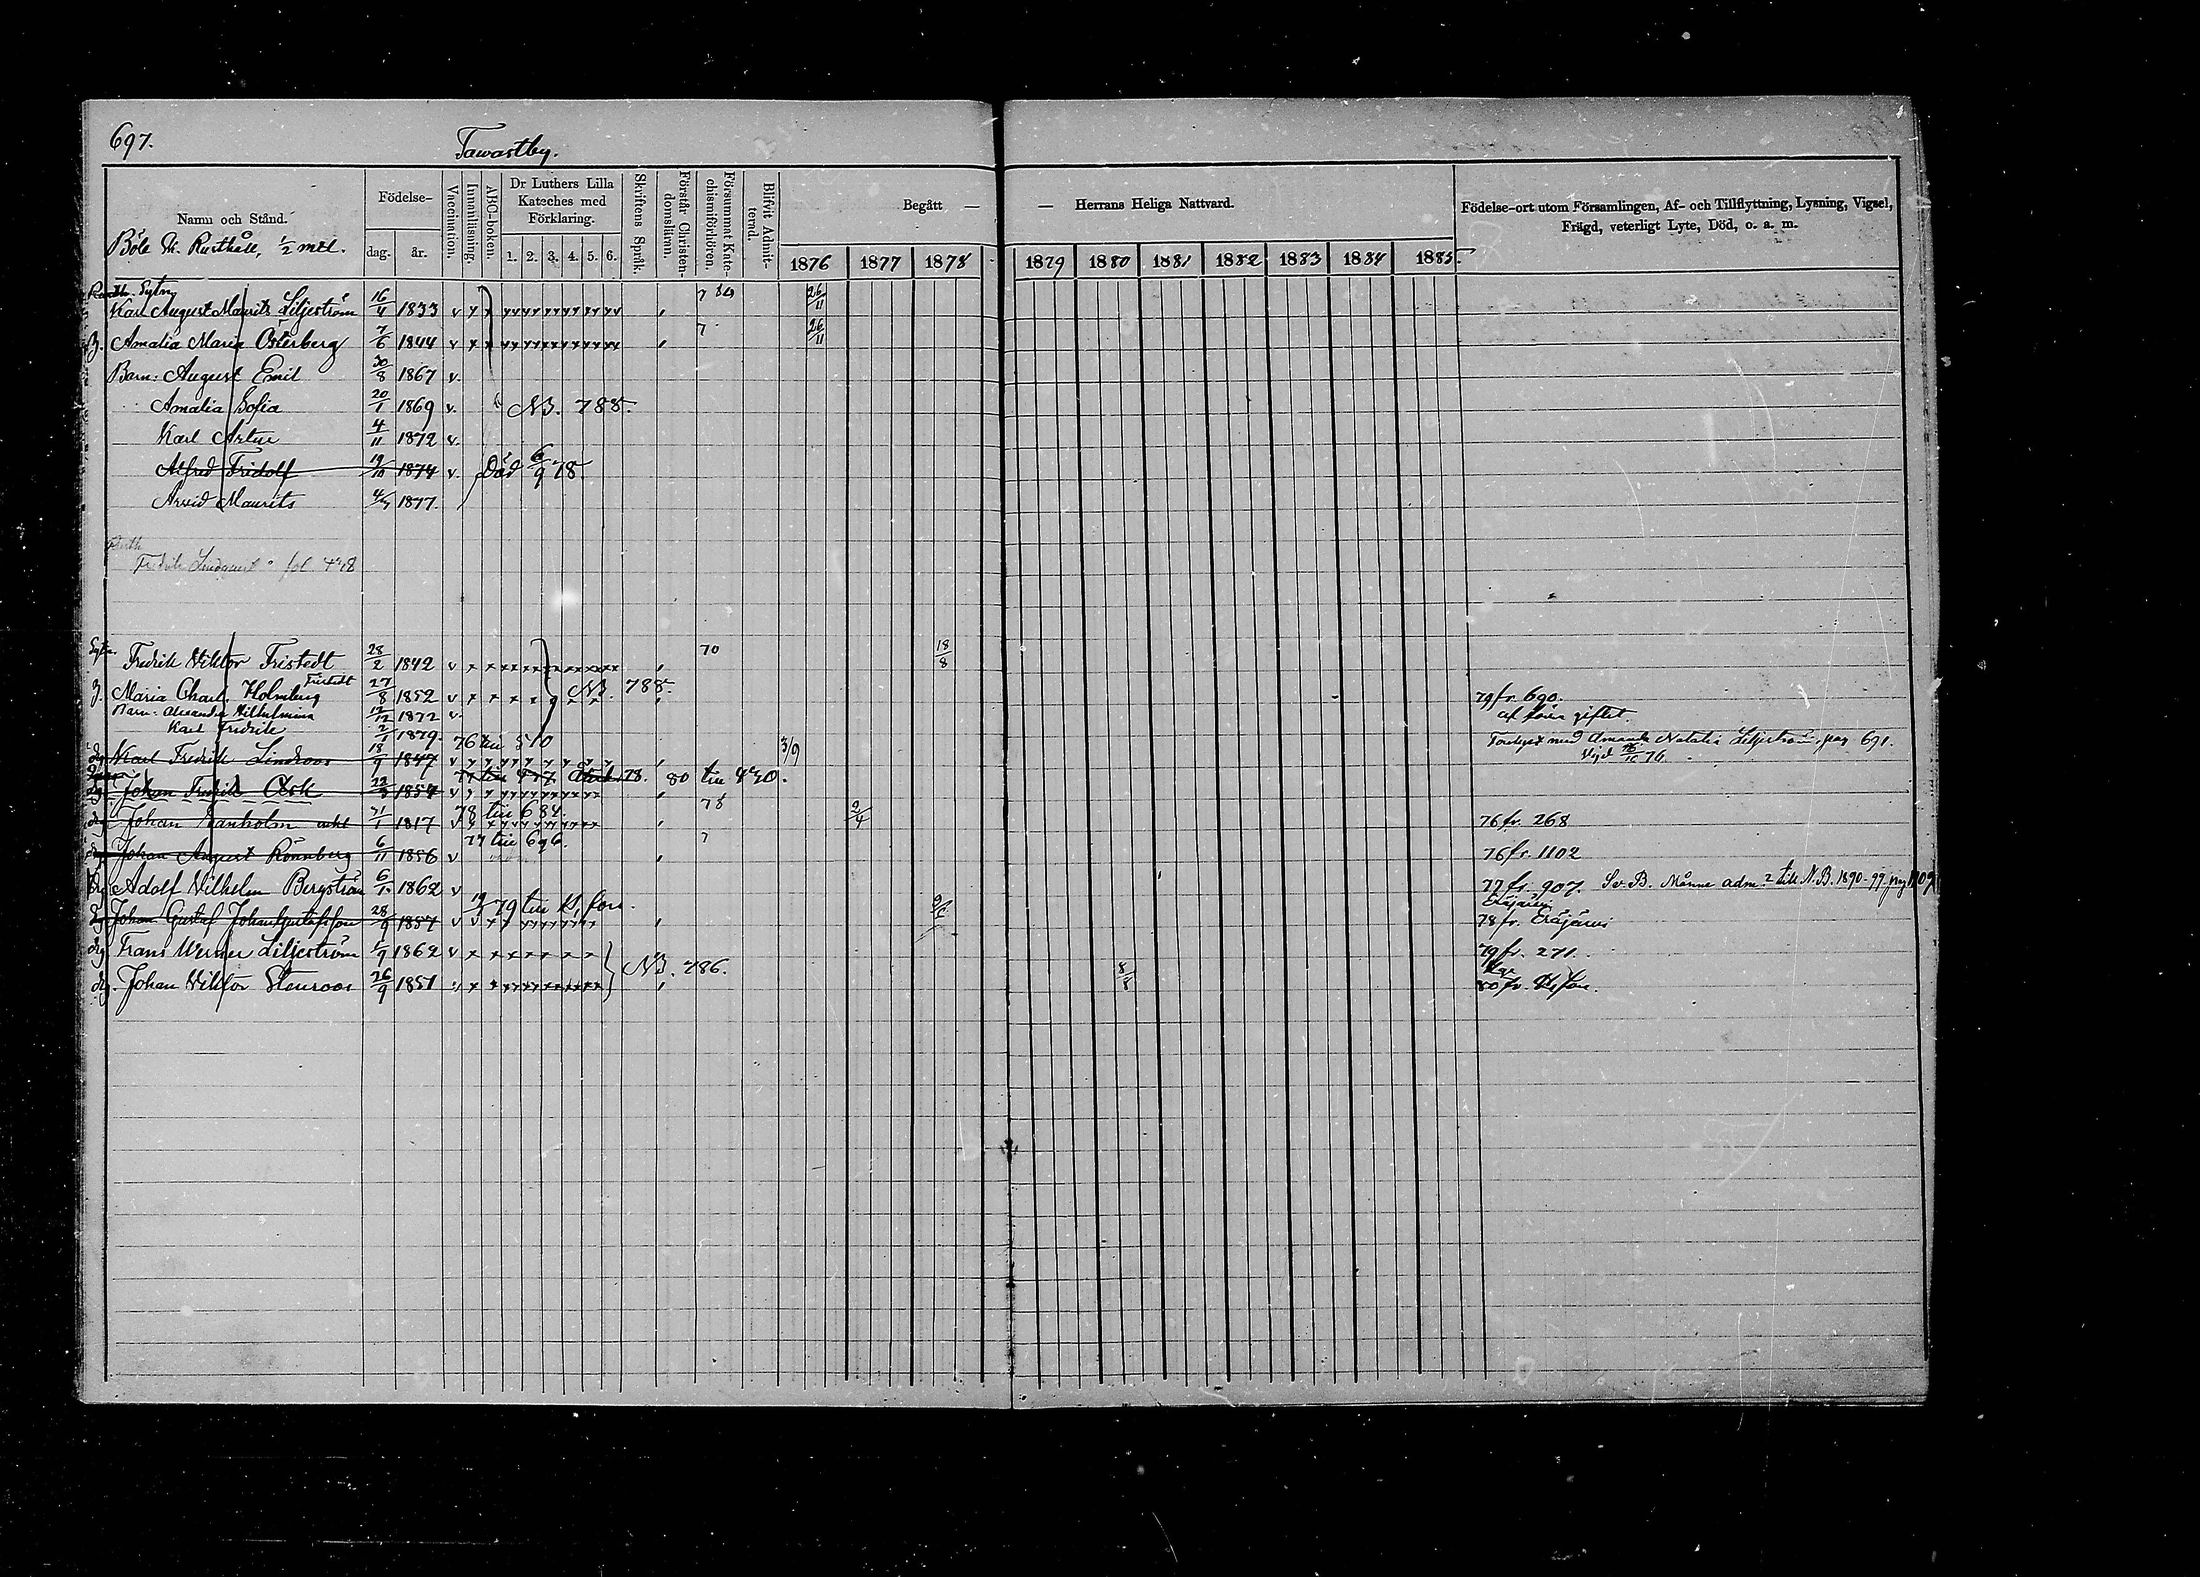 697.
Tawastby.
Namn och Stånd.
Födelse-
dag.
år.
Vaccination.
Innanläsning.
ABC-boken.
Dr Luthers Lilla
Kateches med
Förklaring.
1. 2. 3. 4. 5. 6.
Skriftens Språk.
Förstår Christen-
domsläran.
Försummat Kate-
chismiförhören.
Blifvit Admit-
terad.
Begått — — Herrans Heliga Nattvard.
1876 1877 1878 1879 1880 1881 1882 1883 1884 1885
Födelse-ort utom Församlingen, Af- och Tillflyttning, Lysning, Vigsel,
Frägd, veterligt Lyte, Död, o. a. m.
Böle Rusthåll, 1/2 mtl.
Sytn
Karl August Maurits Liljeström 16/4 1833 v 26/11
Amalia Maria Österberg 7/6 1844 v 7 26/11
Barn: August Emil 30/8 1867 v.
Amalia Sofia 20/1 1869 v. NB. 788.
Karl Artur 4/11 1872 v.
Alfred Fridolf 19/10 1874 v. Död 6/9 78.
Arvid Maurits 4/7 1877.
Fredrik Lindqvist fol. 478
Fredrik Viktor Fristedt 28/2 1842 v 70 18/8
Fristedt
Maria Charl. Holmberg 27/8 1852 v NB. 788. 79 fr. 690.
Barn: Alexandra Vilhelmina 12/12 1872 v. giftet.
Karl Fredrik 2/1 1879.
76 till 510
Karl Fredrik Lindroos 18/9 1847 v 3/9 med Amanda Natalia Liljeström, pag 691.
Vigd 76.
80 till 420.
Johan Fredrik Ask 22/3 1854 v
78 till 684.
Johan Granholm 1817 v 78 2/4 76 fr. 268
77 till 696.
Johan August Rönnberg 6/11 1856 v 7 76 fr. 1102
Adolf Vilhelm Bergström 1862 v 77 fr. 907. Sv. B. Månne adm.? till N.B. 1890-99 pag 1109
79 till H:fors.
Johan Gustaf Johan Gustafsson 28/9 1857 v Eräjärvi
78 fr. Eräjärvi
Frans Werner Liljeström 1/9 1862 v 79 fr. 271.
NB. 786.
Johan Viktor Stenroos 26/9 1851 v 8/8 80 fr. H:fors.